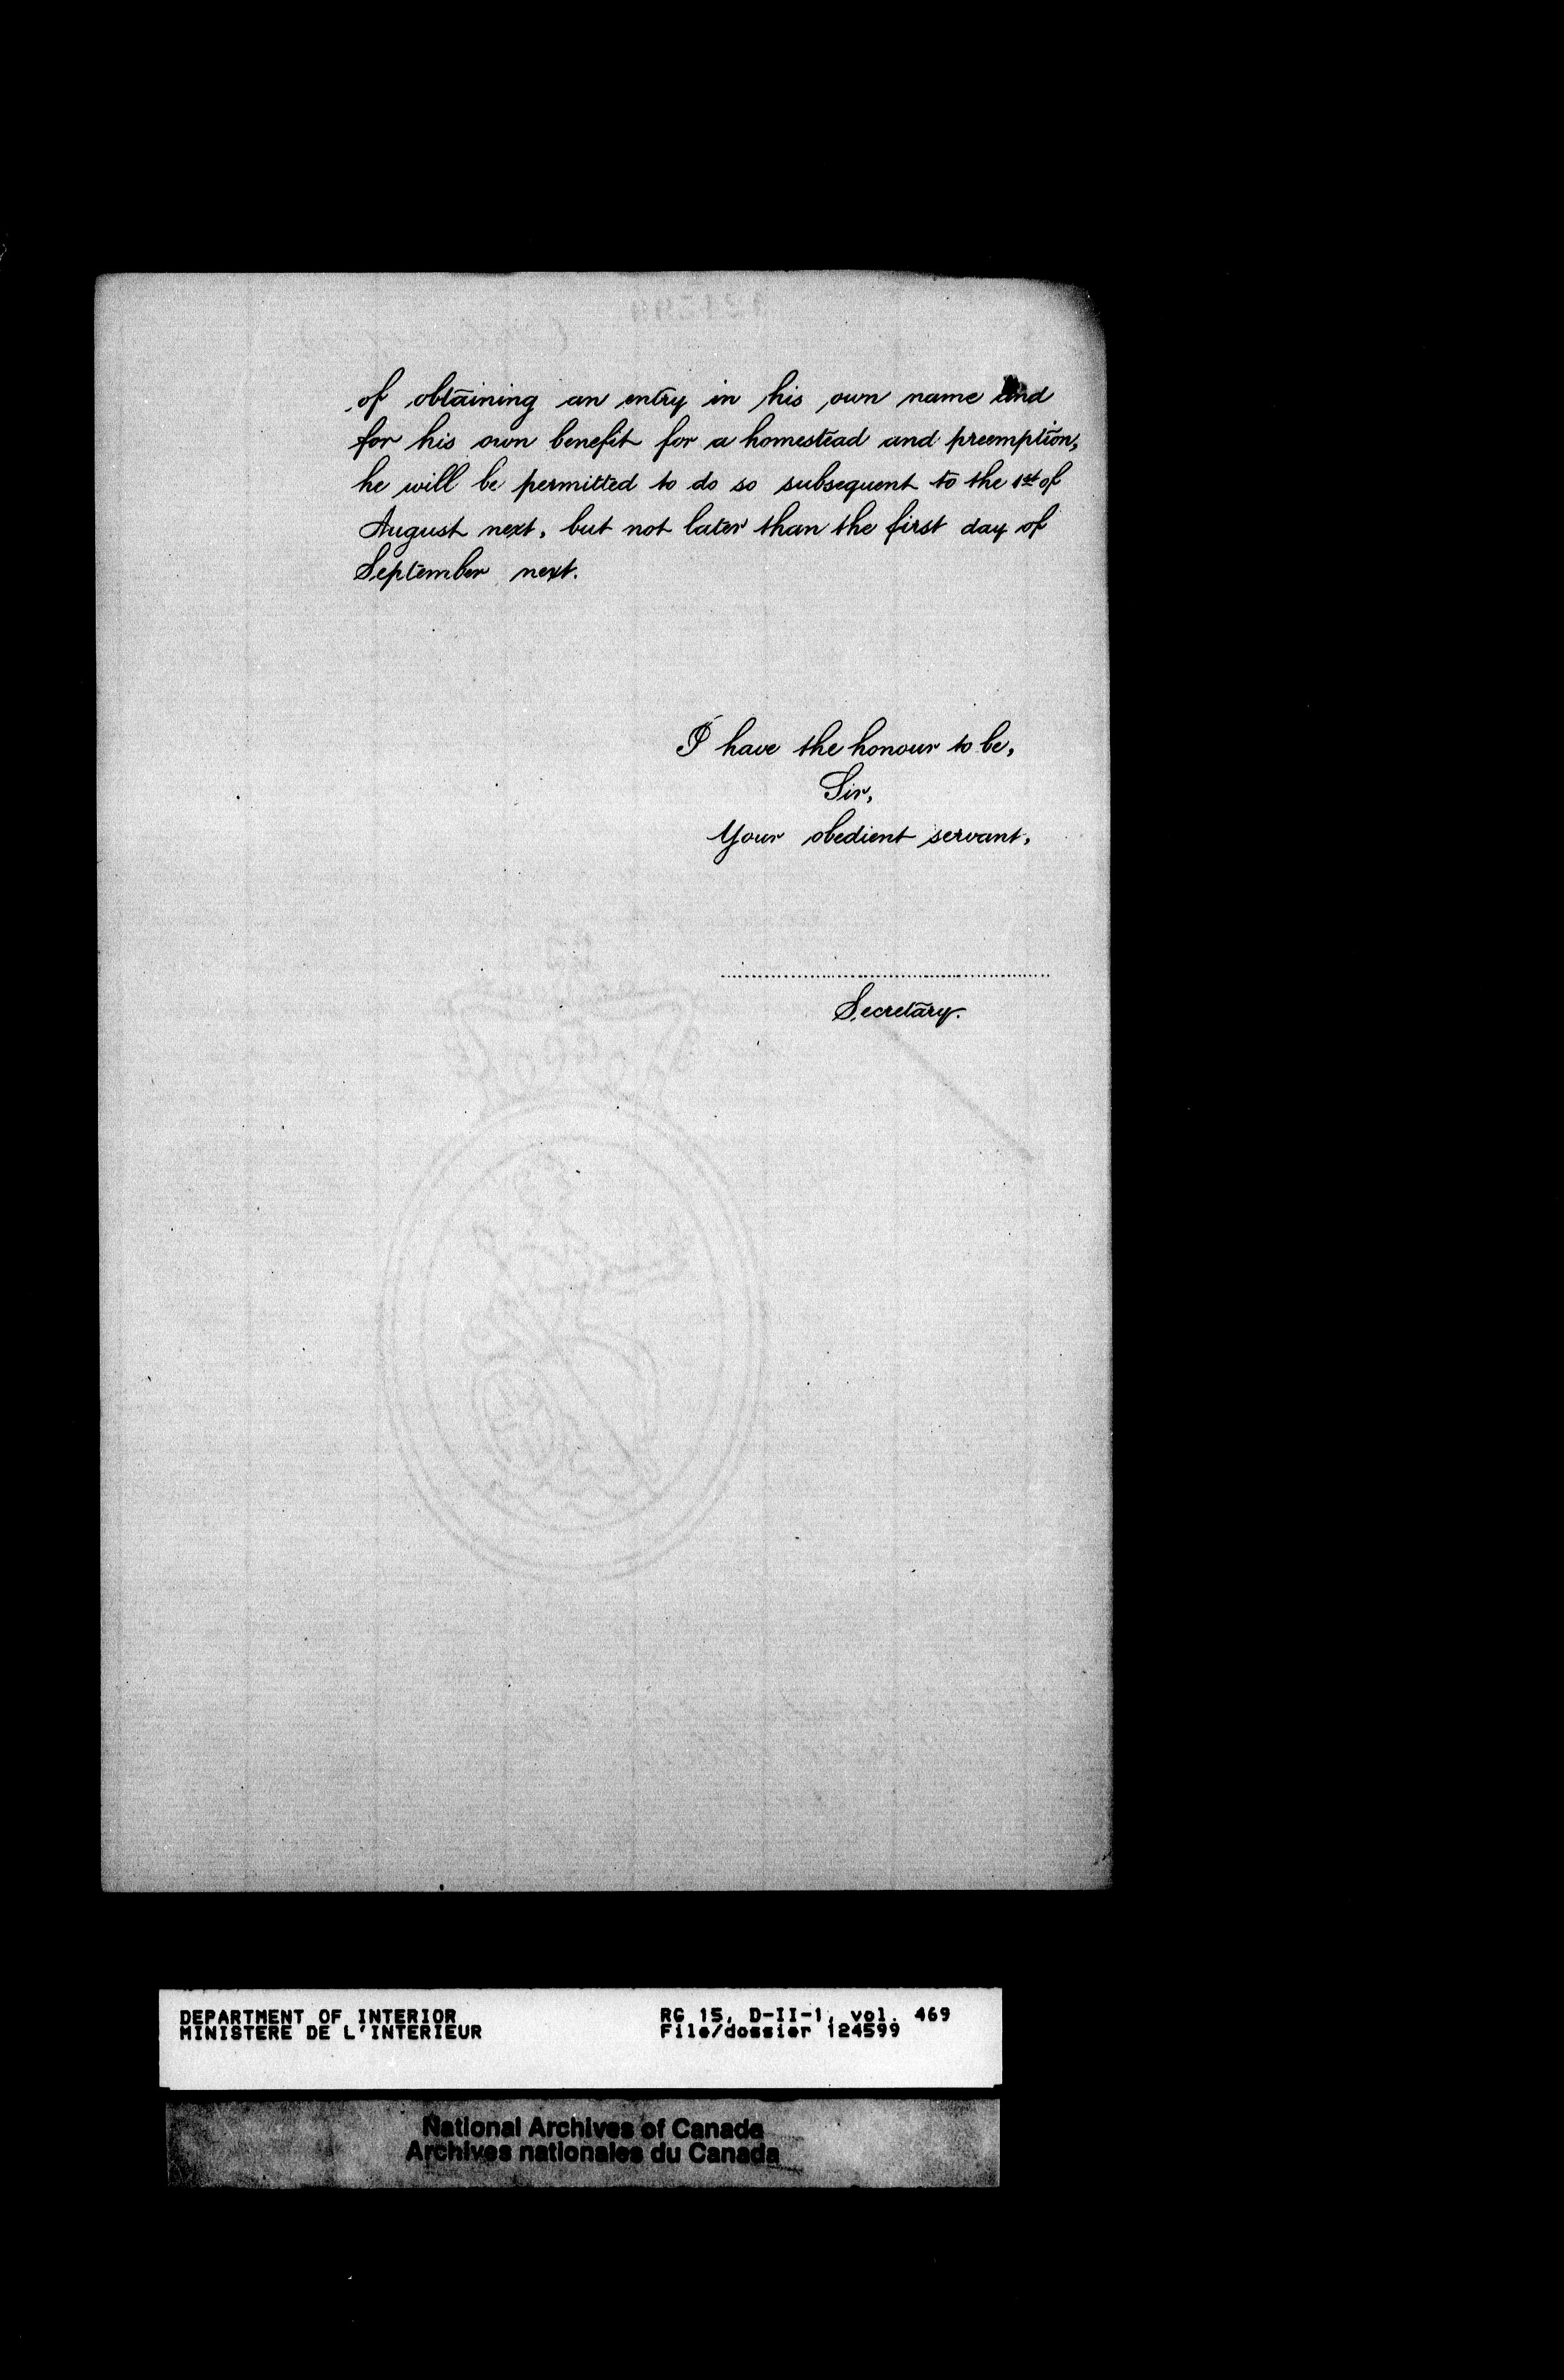 of obtaining an entry in his own name and
for his own benefit for a homestead and preemption,
he will be permitted to do so subsequent to the 1st of
August next, but not later than the first day of
September next.
I have the honour to be,
Sir,
Your obedient servant,
Secretary.
DEPARTMENT OF INTERIOR
MINISTERE DE L'INTERIEUR
RG 15, D-II-1, vol. 469
File/dossier 124599
National Archives of Canada
Archives nationales du Canada